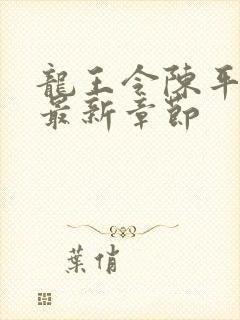 龍王令陳平
最新章節
葉俏